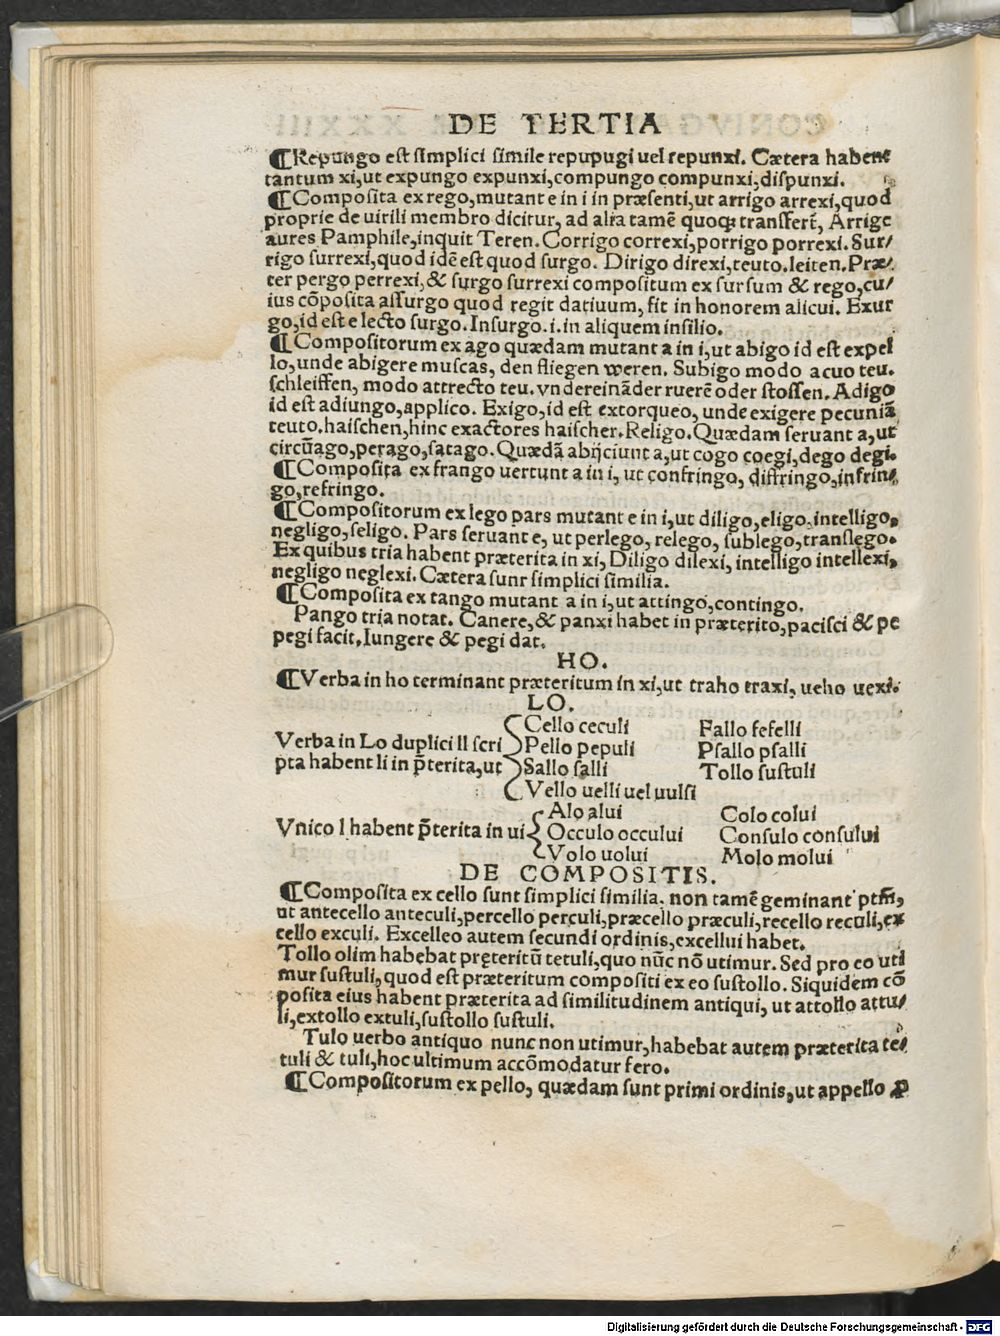 DE TERTIA
¶Repungo est simplici simile repupugi uel repunxi. Cætera habent
tantum xi,ut expungo expunxi,compungo compunxi,dispunxi.
¶Composita ex rego,mutant e in i in præsenti,ut arrigo arrexi,quod
proprie de uirili membro dicitur, ad alia tamē quoqꝫ transfert, Arrige
aures Pamphile,inquit Teren. Corrigo correxi,porrigo porrexi. Sur/
rigo surrexi,quod idē est quod surgo. Dirigo direxi,teuto.leiten.Præ/
ter pergo perrexi,& surgo surrexi compositum ex sursum & rego,cu/
ius cōposita assurgo quod regit datiuum, fit in honorem alicui. Exur
go,id est e lecto surgo. Insurgo.i.in aliquem insilio.
¶Compositorum ex ago quædam mutant a in i,ut abigo id est expel
lo,unde abigere muscas, den fliegen weren. Subigo modo acuo teu.
schleiffen, modo attrecto teu. vndereināder ruerē oder stossen. Adigo
id est adiungo,applico. Exigo,id est extorqueo, unde exigere pecuniā
teuto.haischen,hinc exactores haischer.Religo.Quædam seruant a,ut
circūago,perago,satago. Quædā abijciunt a,ut cogo coegi,dego degi.
¶Composita ex frango uertunt a in i, ut confringo, diffringo,infrin/
go,refringo.
¶Compositorum ex lego pars mutant e in i,ut diligo,eligo,intelligo,
negligo,seligo. Pars seruant e, ut perlego, relego, sublego,translego.
Ex quibus tria habent præterita in xi, Diligo dilexi, intelligo intellexi,
negligo neglexi. Cætera sunr simplici similia.
¶Composita ex tango mutant a in i,ut attingo,contingo.
Pango tria notat. Canere,& panxi habet in præterito,pacisci & pe
pegi facit.Iungere & pegi dat.
HO.
¶Verba in ho terminant præteritum in xi,ut traho traxi, ueho uexi.
LO.
Verba in Lo duplici ll scri
pta habent li in p̄terita,ut
Cello ceculi Fallo fefelli
Pello pepuli Psallo psalli
Sallo salli Tollo sustuli
Vello uelli uel uulsi
Vnico l habent p̄terita in ui
Alo alui Colo colui
Occulo occului Consulo consului
Volo uolui Molo molui
DE COMPOSITIS.
¶Composita ex cello sunt simplici similia. non tamē geminant
ut antecello anteculi,percello perculi,præcello præculi,recello reculi,ex
cello exculi. Excelleo autem secundi ordinis,excellui habet.
Tollo olim habebat pręteritū tetuli,quo nūc nō utimur. Sed pro eo uti
mur sustuli,quod est præteritum compositi ex eo sustollo. Siquidem cō
posita eius habent præterita ad similitudinem antiqui, ut attollo attu/
li,extollo extuli,sustollo sustuli.
Tulo uerbo antiquo nunc non utimur,habebat autem præterita te/
tuli & tuli,hoc ultimum accōmodatur fero.
¶Compositorum ex pello, quædam sunt primi ordinis,ut appello ꝓ
Digitalisierung gefördert durch die Deutsche Forschungsgemeinschaft - DFG